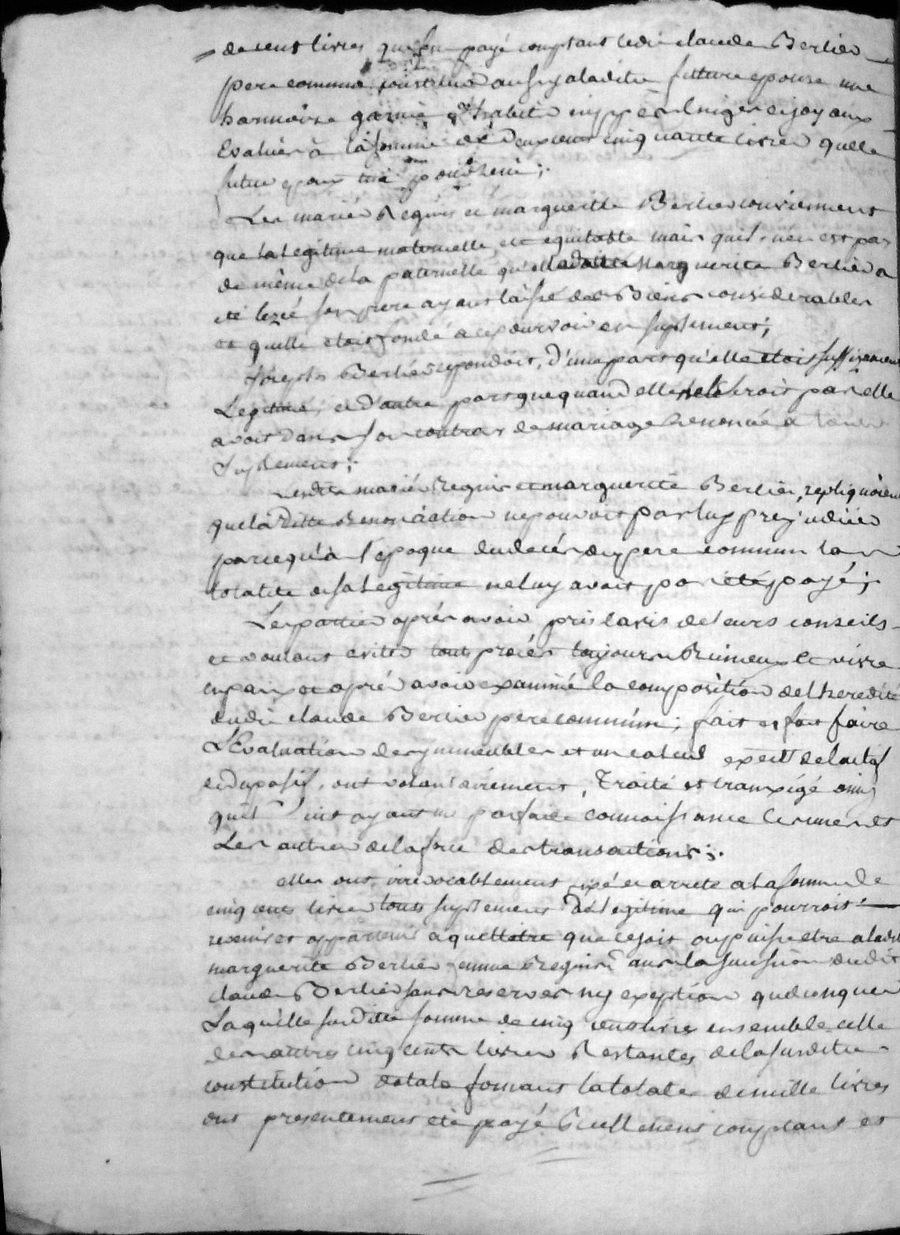 de cent livres qui fut payé comptant ledit claude Berlier
pere commun constitua aussy a laditte future epouse une
garnie habits linge et joyaux
Evalués à la somme de deux cent cinquante livres quelle
future epoux
Les mariés Regnis et marguerite Berlier convienment
que la Legitime maternelle est equitable mais quil n'en est pas
de même de la paternelle qu'elle ditte Marguerite Berlier a
eté lezée son pere ayant laissé des Biens considerables
et quelle etoit fondé a se pourvoir en suplement;
Joseph Berlier repondoit, d'une part qu'elle etoit suffisament
Legitimé, et d'autre part que quand elle ne le seroit pas elle
avoit dans son contrat de mariage Renoncé a tout
suplement;
Lesdits mariés Regnis et marguerite Berlier, repliquoient
que la ditte Renonciation ne pouvoit pas luy prejudicier
parcequ'à l'epoque du decés du pere commun la
totalité de sa Legitime ne luy avoit pas été payé;
Les parties aprés avoir pris l'avis de leurs conseils
et voulant eviter tout procés toujours Ruineux et vivre
en paix et aprés avoir examiné la composition de l'heredité
dudit claude Berlier pere commun; fait et fait faire
L'Evaluation des immeubles et un calcul exact de l'actif
et du passif, ont volontairement, Traité et transigé ainsi
qu'il suit ayant une parfaite connoissance les unes et
Les autres de la force des transactions;
elles ont irrevocablement fixé et arreté a la somme de
cinq cents livres tout suplement de legitime qui pourroit
revenir et appartenir a quel titre que ce soit ou puisse etre a ladite
marguerite Berlier femme Regnis sur la succession dudit
claude Berlier sans reserves ny exeption quelconques
Laquelle susditte somme de cinq cents livres ensemble celle
des autres cinq cents livres Restantes de la susditte
constitution dotale formant la totale de mille livres
ont presentement eté payé Reellement comptant et